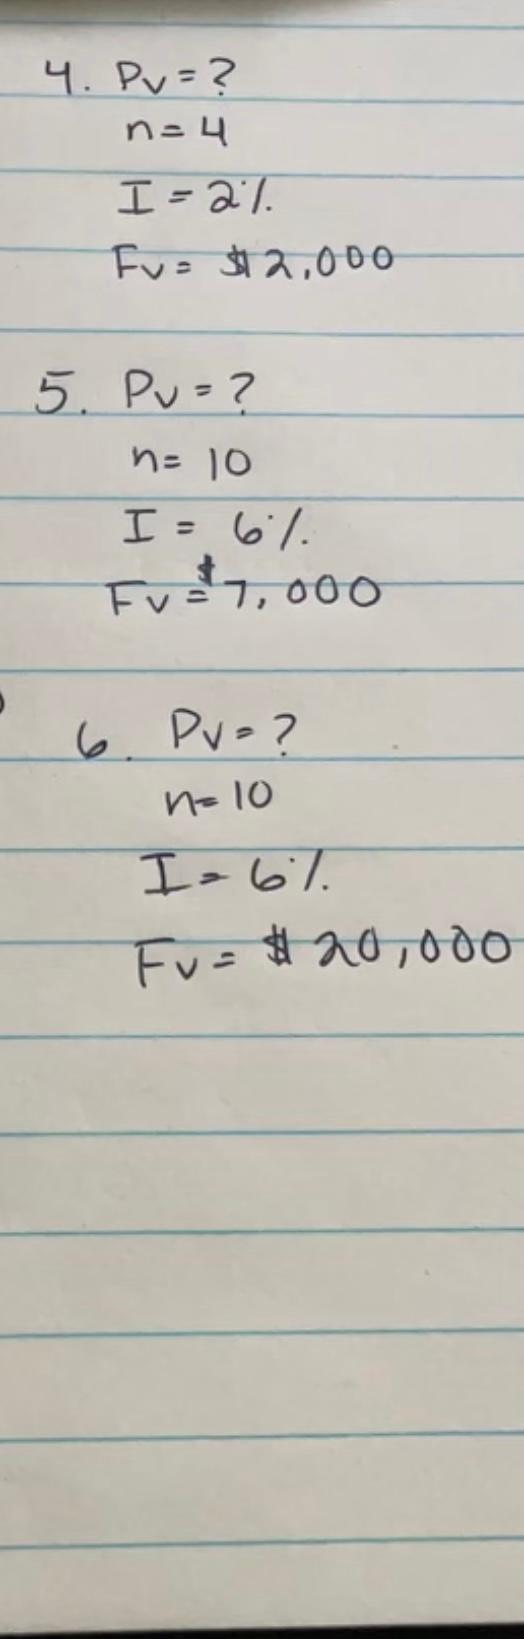 4. Pv = ?
n = 4
I = 2%
Fv = $2,000
5. Pv = ?
n = 10
I = 6%
Fv = $7,000
6. Pv = ?
n = 10
I = 6%
Fv = $20,000